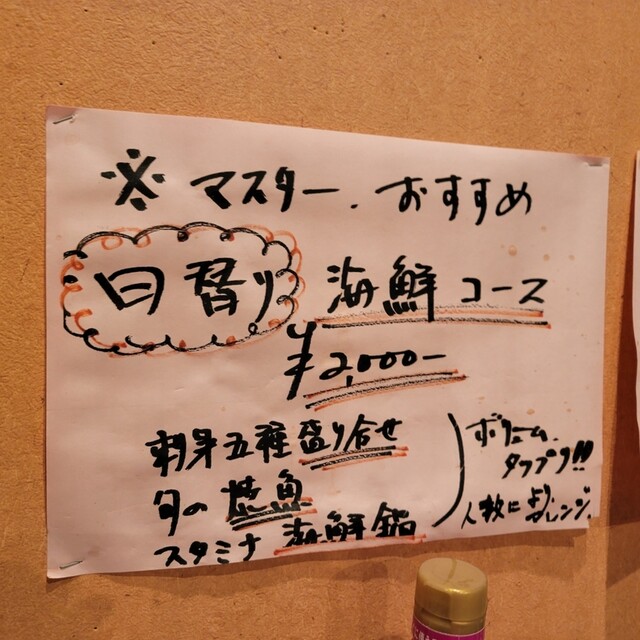 ※ マスター.おすすめ
日替り 海鮮コース
¥2,000-
刺身五種盛り合せ
旬の煮魚
スタミナ海鮮鍋
ボリューム
タップリ!!
人数によりアレンジ